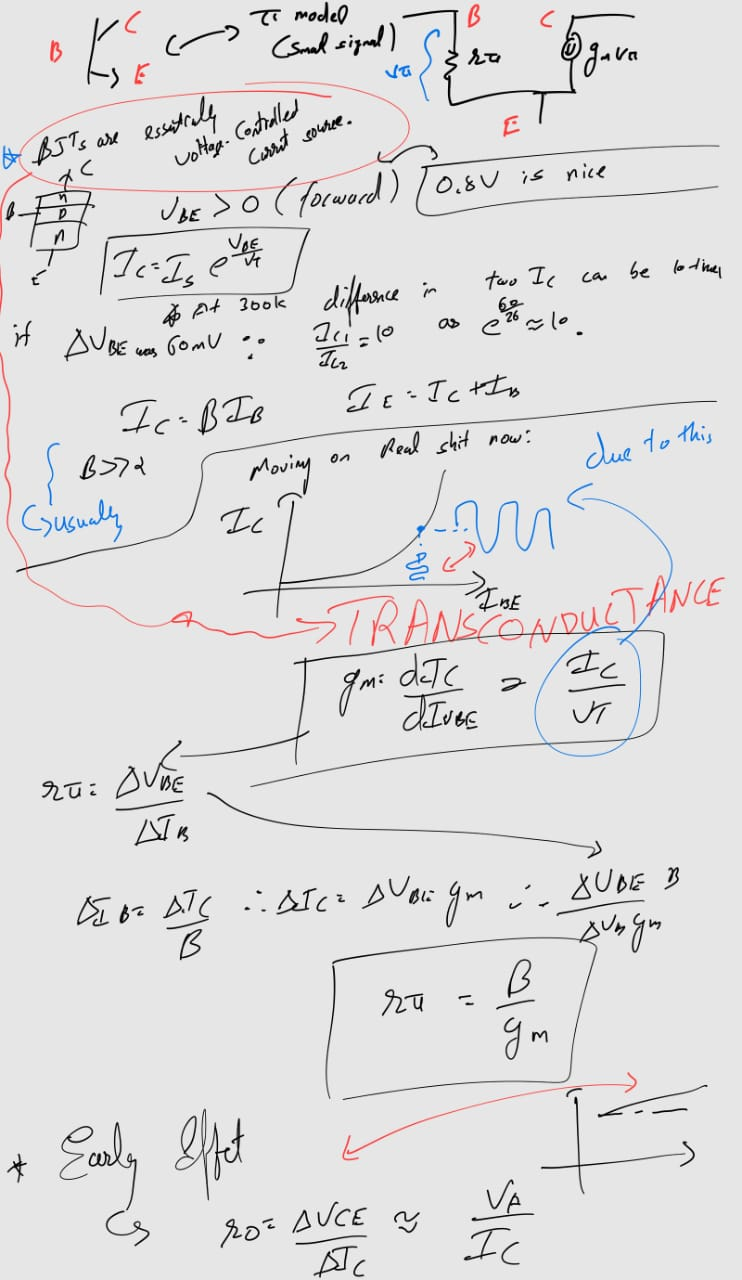 B C E
π model
(small signal)
B C
vπ rπ gmvπ
E
BJTs are essentially
voltage-controlled
currnt source.
C
B n p n
E
VBE > 0 (forward) 0.8V is nice
Ic = Is e^(VBE/VT)
At 300k difference in two Ic can be 10 times
if ΔVBE was 60mV ∵ Ic1/Ic2 = 10 as e^(60/26) ≈ 10.
Ic = βIB IE = Ic + IB
usually
Moving on Real shit now:
due to this
Ic
IBE
TRANSCONDUCTANCE
gm = dIc/dIVBE = Ic/VT
rπ = ΔVBE/ΔIB
ΔIB = ΔIc/β ∴ ΔIc = ΔVBE gm
rπ = β/gm
* Early Effect
ro = ΔVCE/ΔIc ≈ VA/Ic